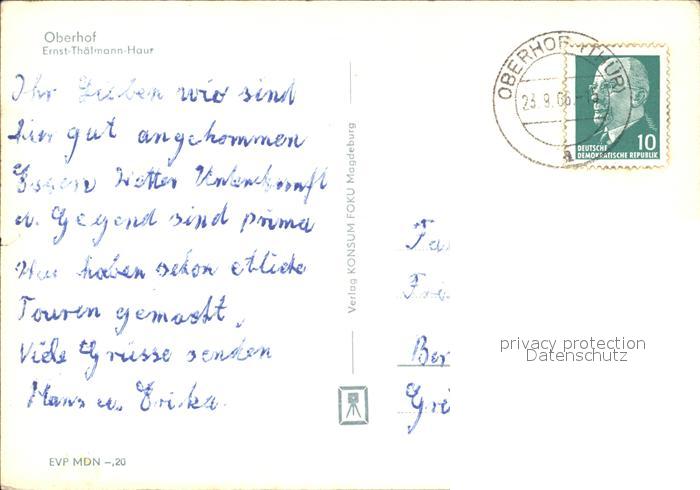 Oberhof
Ernst-Thälmann-Haus
Ihr Lieben wir sind
hier gut angekommen
Essen Wetter Unterkunft
u. Gegend sind prima
Wir haben schon etliche
Touren gemacht,
Viele Grüsse senden
Hans u. Erika.
EVP MDN -,20
Verlag KONSUM FOKU Magdeburg
OBERHOF (THÜR)
23.9.66
a
10
DEUTSCHE
DEMOKRATISCHE REPUBLIK
Fa
Fri
Ber
Gri
privacy protection
Datenschutz